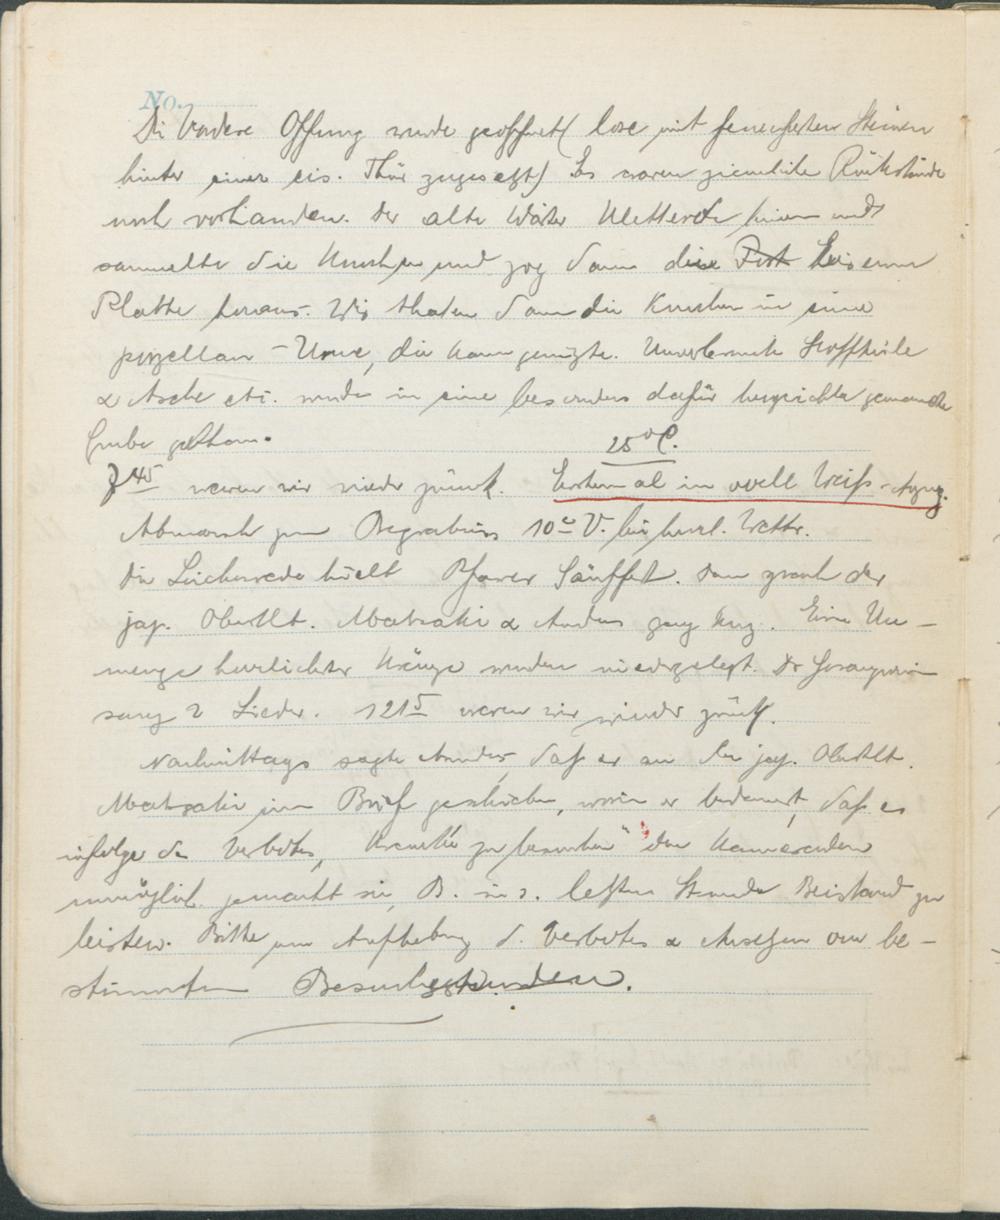 No.
Die Vordere Öffnung wurde geöffnet (lose mit feuerfesten Steinen
hinter einer eis. Thür zugesetzt) Es waren ziemliche Rückstände
noch vorhanden. Der alte Wärter kletterte hinein und
sammelte die Knochen und zog dann die eiserne
Platte heraus. Wir thaten dann die Knochen in eine
porzellan-Urne, die kaum genügte. Unverbrannte Stoffteile
& Asche etc. wurde in eine besonders dafür gemachte
Grube gethan.
25° C.
7 45 waren wir wieder zurück. Erstemal in voll Weiss-Anzug.
Abmarsch zum Begräbnis 10 V. bei herrl. Wettr.
Die Leichenrede hielt Pfarrer Sänffert. Dann sprach der
jap. Oberstlt. & Anders ganz kurz. Eine Un-
menge herrlichster Kränze wurden niedergelegt. Dr Gesangverein
sang 2 Lieder. 12 15 waren wir wieder zurück.
Nachmittags sagte Anders, daß er an den jap. Oberstlt.
einen Brief geschrieben, worin er bedauert, daß es
infolge des Verbotes, Kranke zu besuchen" den Kameraden
unmöglich gemacht sei, B. in s. letzten Stunde Beistand zu
leisten. Bitte um Aufhebung d. Verbotes & Ansetzen von be-
stimmten Besuchsstunden.